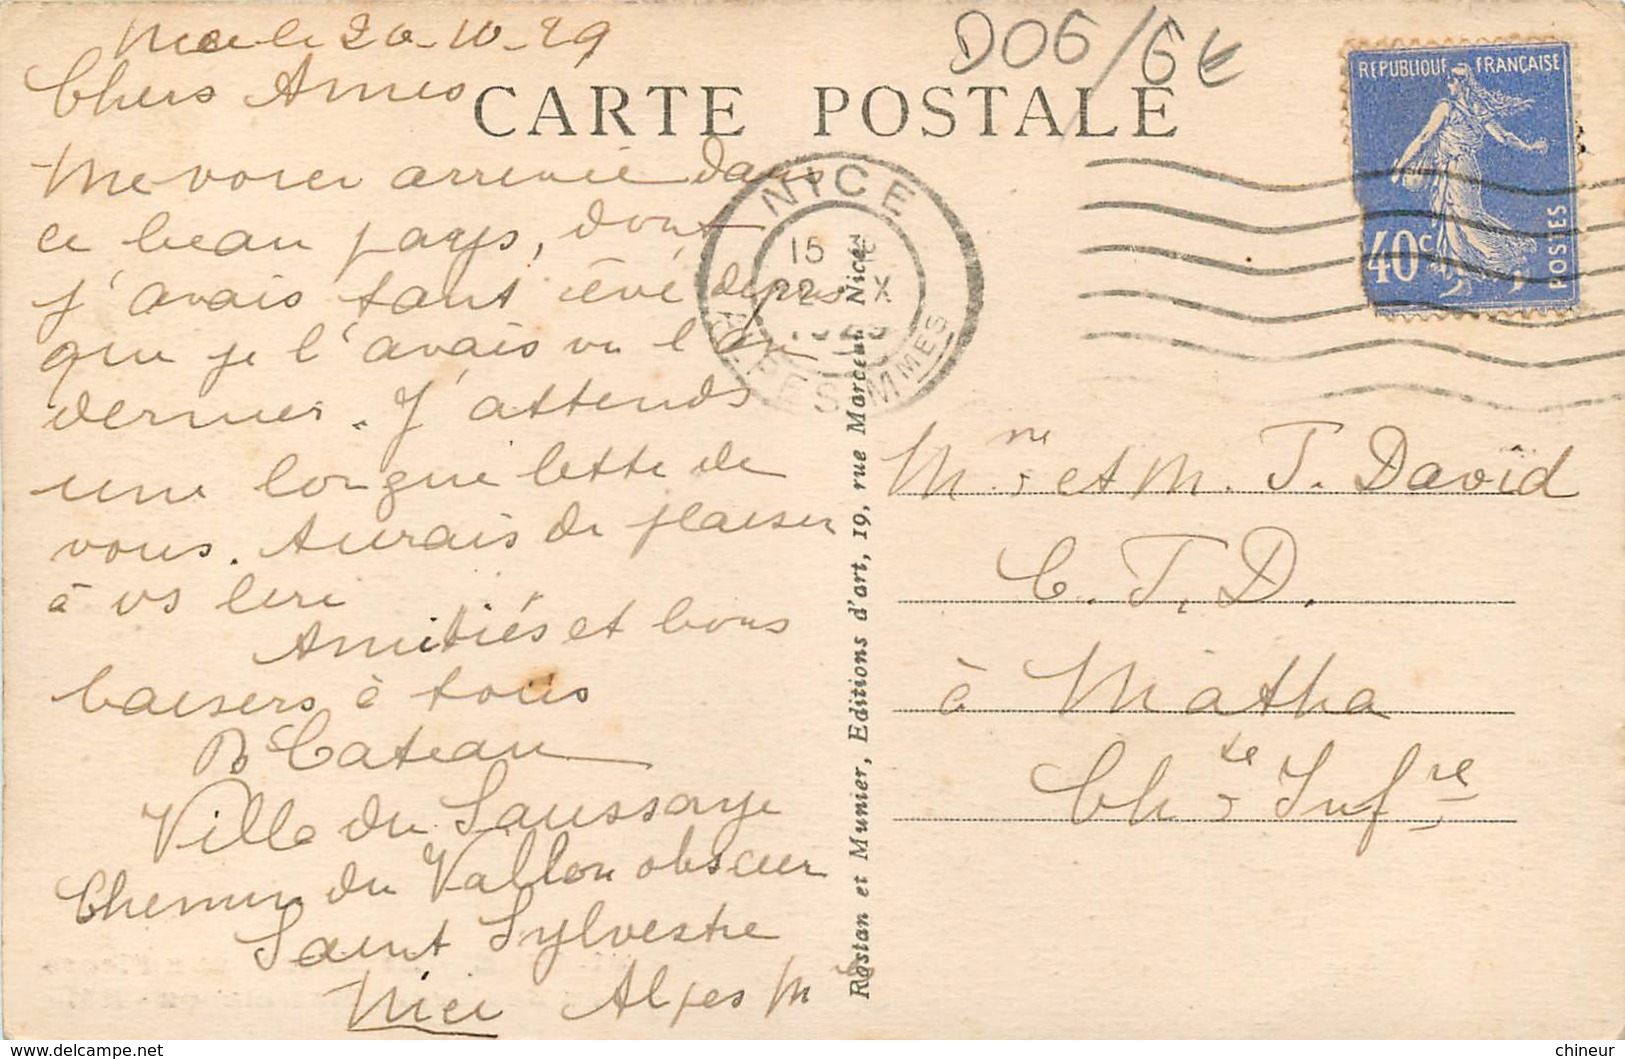 Nice le 20-10-29
Chers Amis
D06/6€
CARTE POSTALE
REPUBLIQUE FRANÇAISE
40c
POSTES
NICE
15
22 X
1929
ALPES MMES
Me voici arrivée dans
ce beau pays, dont
j'avais tant rêvé depuis
que je l'avais vu l'an
dernier. J'attends
une longue lettre de
vous. Aurais du plaisir
à vs lire
Amitiés et bons
baisers à tous
B Cateau
Villa du Saussaye
Chemin du Vallon obscur
Saint Sylvestre
Nice Alpes Mmes
Rostan et Munier, Editions d'art, 19, rue Marceau, Nice
Mme et M. J. David
C.T.D.
à Matha
Chte Infre
chineur
http://www.delcampe.net